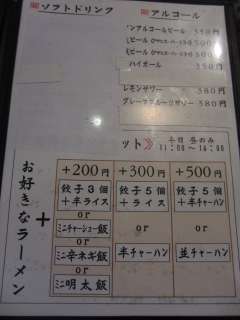 ソフトドリンク
アルコール
ンアルコールビール 350円
ビール
ビール
ハイボール 350円
レモンサワー 380円
グレープフルーツサワー 380円
ット 平日 昼のみ
11:00~14:00
お好きなラーメン
+
+200円
餃子3個
+半ライス
or
ミニチャーシュー飯
or
ミニ辛ネギ飯
or
ミニ明太飯
+300円
餃子5個
+ライス
or
半チャーハン
+500円
餃子5個
+半チャーハン
or
並チャーハン